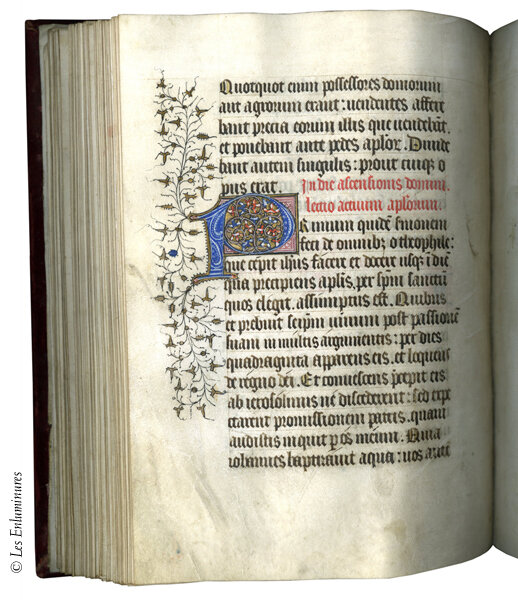 Quotquot enim possessores domorum
aut agrorum erant: uendentes affere
bant precia eorum illis que uendebāt.
et ponebant ante pedes aplor̄. Diuide
bant autem singulis: prout cuiq̄ o
pus erat. In die ascensionis domini.
lectio actuum aplorum.
Rimum quidē sermonem
feci de omnibȝ o theophile:
que cepit ihūs facere et docere usqȝ ī diē
qua precipiens aplīs. per spm̄ sanctū
quos elegit. assumptus est. Quibus
et prebuit seip̄m uiuum post passionē
suam in multis argumentis: per dies
quadraginta apparens eis. et loquens
de regno dei. Et conuescens p̄cepit eis
ab ierosolimis ne discederent: sed expe
ctarent promissionem patris. quam
audistis inquit p̄ os meum. Quia
iohannes baptizauit aqua: uos autē
© Les Enluminures